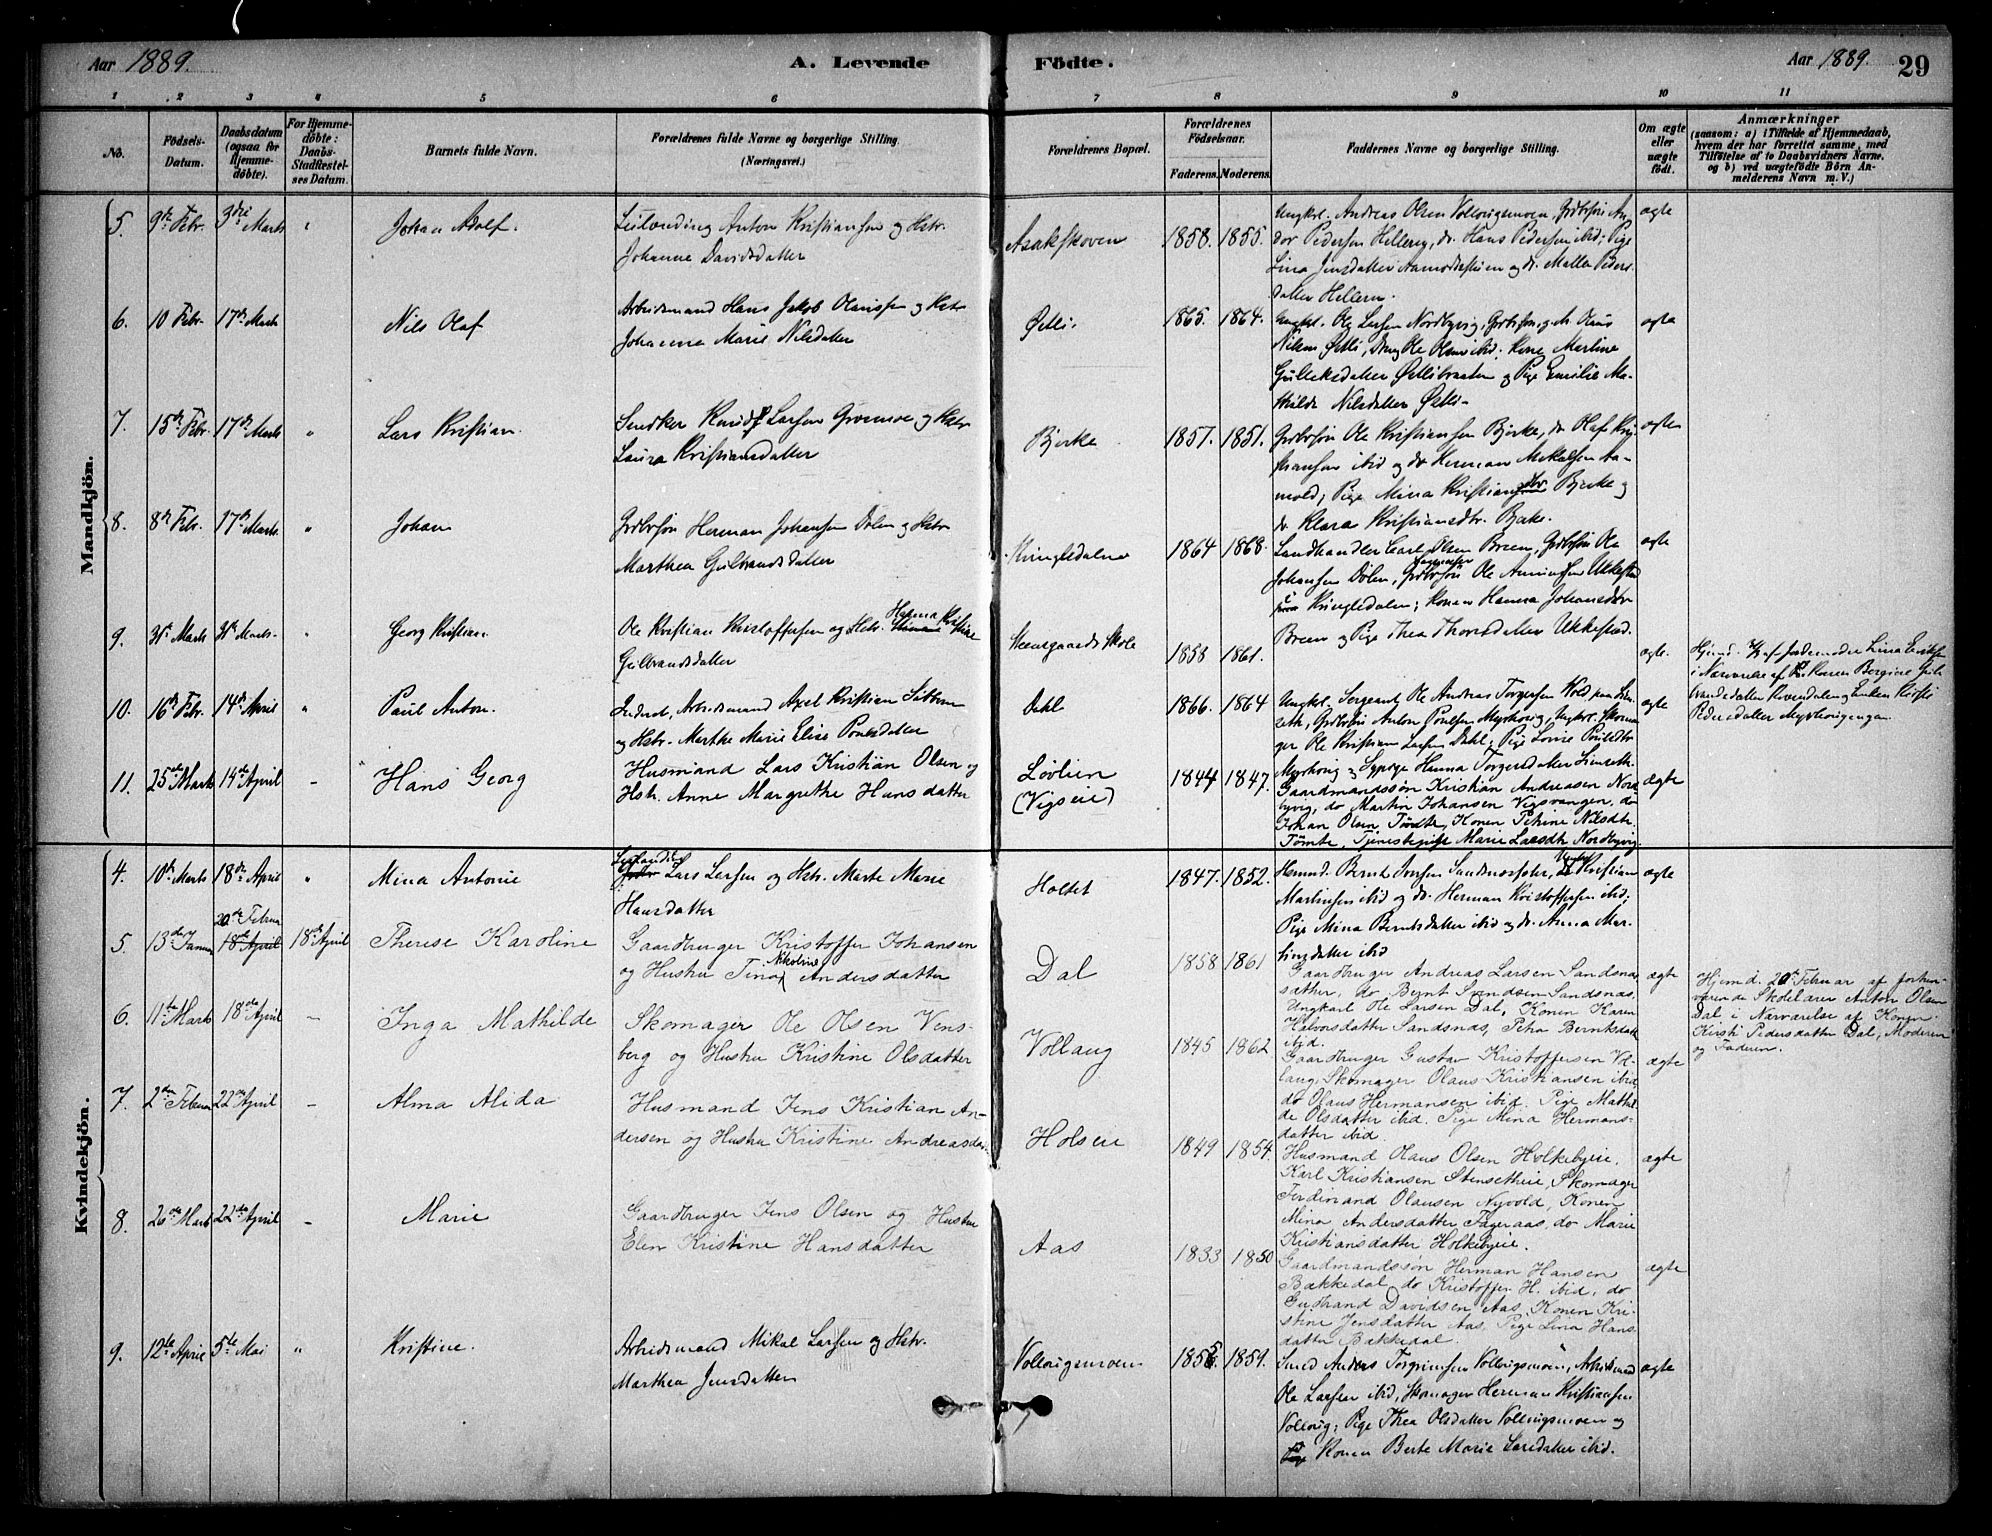 Aar 1889.
A. Levende
Fødte.
Aar 1889.
29
1 2 3 4 5 6 7 8 9 10 11
No.
Födsels-
Datum.
Daabsdatum
(ogsaa for
Hjemme-
döbte).
For Hjemme-
döbte:
Daabs-
Stadfæstel-
ses Datum.
Barnets fulde Navn.
Forældrenes fulde Navne og borgerlige Stilling.
(Næringsvei.)
Forældrenes Bopæl.
Forældrenes
Födselsaar.
Faderens. Moderens.
Faddernes Navne og borgerlige Stilling.
Om ægte
eller
uægte
födt.
Anmærkninger
(saasom: a) i Tilfælde af Hjemmedaab,
hvem der har forrettet samme, med
Tilföielse af to Daabsvidners Navne.
og b) ved uægtefödte Börn An-
melderens Navn m. V.)
Mandkjön.
5. 9de Febr. 3die Marts
Johan Adolf.
Leilænding Anton Kristiansen og Hstr.
Johanne Davidsdatter
Asakskoven
1858. 1855.
Ungkrl. Andreas Olsen Vollaugsmoen, Grdbrsøn An-
dor Pedersen Helleren, do Hans Pedersen ibid; Pige
Lina Jensdatter og do. Malla Peders-
datter Hellern.
ægte
6. 10 Febr. 17de Marts
Nils Olaf
Arbeidsmand Hans Jakob Olaussen og Hstr
Johanna Marie Nilsdatter
Østli.
1865. 1864.
Ungkrl. Ole Larsen Nordbyvig, Olaus
Nilsen Østli, Ole Olsen ibid. Kone Martine
Gulleksdatter Østlibraaten og Pige Emilie Ma-
thilde Nilsdatter Østli.
ægte
7. 15de Febr. 17de Marts "
Lars Kristian.
Snedker Knud Larsen Grønmoe og Hstr
Laura Kristiansdatter
Bjerke
1857. 1851.
Grdbrsøn Ole Kristiansen Bjerke, do Olaf Kri-
stiansen ibid og do Herman Mikalsen Aa-
mold; Pige Mina Kristiansdtr Bjerke og
do Klara Kristiansdtr. Bjerke.
ægte
8. 8de Febr. 17de Marts. "
Johan
Grdbrsøn Herman Johansen Dølen og Hstr
Marthea Gulbrandsdatter
Kringledalen
1864 1868.
Landhandler Carl Olsen Breen, Grdbrsøn Ole
Johansen Dølen, Grdbrsøn Ole Amundsen Ukkestad
i Kringledalen; Konen Hanna Johansdtr
Breen og Pige Thea Thorsdatter Ukkestad.
ægte
9. 31te Marts "
Georg Kristian.
Ole Kristian Kristoffersen og Hstr. Hanna Kristine
Gulbrandsdatter
Steensgaards Skole
1858 1861.
ægte.
Hjemd. af Jordemoder Lina
i Nærværelse af Konen Bergine Gul-
brandsdatter og Enken Kirsti
Pedersdatter Myrhougengen.
10. 16de Febr. 14de April "
Paul Anton.
Inderst, Arbeidsmand Axel Kristian
og Hstr. Marthe Marie Elise Poulsdatter
Dahl
1866. 1864
Ungkrl. Sergeant Ole Andreas Torgersen Hold
Grdbrsøn Anton Poulsen Myrhoug, Ungkrl. Skoma-
ger Ole Kristian Larsen Dahl; Pige Lovise Poulsdtr
Myrhoug og Sypige Hanna Torgersdatter Lienseth.
ægte
11. 25de Marts 14de April –
Hans Georg
Husmand Lars Kristian Olsen og
Hstr. Anne Margrethe Hansdatter
Løvlien
(Vigseie)
1844 1847.
Gaardmandssøn Kristian Andreasen Nord-
byvig, do Martin Johansen Vigsvangen, do
Johan Olsen Tømte, Konen Petrine Nilsdtr
Tømte, Tjenestepige Marie Larsdtr Nordbyvig.
ægte
Kvindekjön.
4. 10de Marts 18de April "
Mina Antonie
Lars Larsen og Hstr. Marte Marie
Hansdatter
Holtet
1847. 1852.
Husmd. Bernt Iversen Sandsnæssæter, Kristian
Martinsen ibid og do. Herman Kristoffersen ibid;
Pige Mina Berntsdatter ibid og do. Anna Mar-
tinsdatter ibid
ægte
5. 13de Januar 20de Februar 18de April 18de April
Therese Karoline
Gaardbruger Kristoffer Johansen
og Hustru Tina Nikoline Andersdatter
Dal
1858 1861
Gaardbruger Andreas Larsen Sandsnæs-
sæther, do Bernt Sandsnæs.
Ungkarl Ole Larsen Dal, Konen Karen
Halvorsdatter Sandsnæs, Petra Berntsdatt
ibid.
ægte
Hjemd. 20de Februar af forhen-
værende Skolelærer Anton Olsen
Dal i Nærværelse af Konen
Kirsti Pedersdatter Dal, Moderen
og Faderen.
6. 11te Marts 18de April –
Inga Mathilde
Skomager Ole Olsen Vens-
berg og Hustru Kristine Olsdatter
Vollaug
1845 1862
Gaardbruger Gustav Kristoffersen Vol-
laug, Skomager Olaus Kristiansen ibid,
do Olaus Hermansen ibid. Pige Mathil-
de Olsdatter ibid. Pige Mina Hermans-
datter ibid.
ægte
7. 2den Februar 22de April –
Alma Alida
Husmand Jens Kristian An-
dersen og Hustru Kristine Andreasdat
Holseie
1849 1854.
Husmand Olaus Olsen Holkebyeie.
Karl Kristiansen Stenseteie, Skomager
Ferdinand Olausen Nyvold, Konen
Mina Andersdatter Fageraas, do Marie
Kristiansdatter Holkebyeie.
ægte
8. 20de Marts 22de April –
Marie
Gaardbruger Jens Olsen og Hustru
Elen Kristine Hansdatter
Aas
1833 1850
Gaardmandssøn Herman Hansen
Bakkedal, do Kristoffer H. ibid, do
Gudbrand Davidsen Aas. Konen Kri-
stine Jensdatter Aas. Pige Lina Hans-
datter Bakkedal.
ægte
9. 12te April 5te Mai "
Kristine.
Arbeidsmand Mikal Larsen og Hstr.
Marthea Jensdatter
Vollaugsmoen
1855. 1859.
Smed Anders Torgrimsen Vollaugsmoen, Arbeidsmd
Ole Larsen ibid, Skomager Herman Kristiansen
Vollaug; Pige Thea Olsdatter Vollaugsmoen og
Konen Berte Marie Larsdatter ibid.
ægte